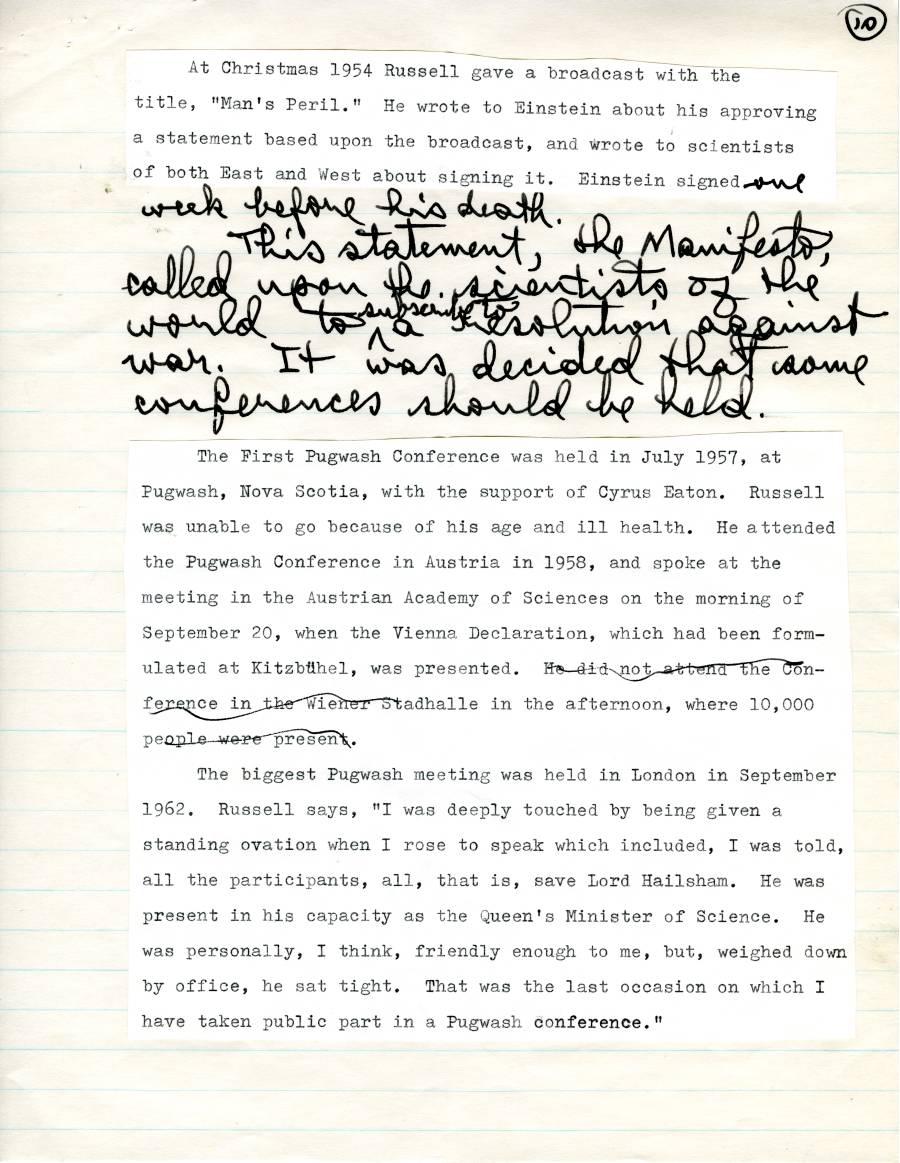 10
At Christmas 1954 Russell gave a broadcast with the
title, "Man's Peril."  He wrote to Einstein about his approving
a statement based upon the broadcast, and wrote to scientists
of both East and West about signing it.  Einstein signed one
week before his death.
This statement, the Manifesto,
called upon the scientists of the
subscribe to
world to a resolution against
war. It was decided that some
conferences should be held.
The First Pugwash Conference was held in July 1957, at
Pugwash, Nova Scotia, with the support of Cyrus Eaton.  Russell
was unable to go because of his age and ill health.  He attended
the Pugwash Conference in Austria in 1958, and spoke at the
meeting in the Austrian Academy of Sciences on the morning of
September 20, when the Vienna Declaration, which had been form-
ulated at Kitzbühel, was presented.  He did not attend the Con-
ference in the Wiener Stadhalle in the afternoon, where 10,000
people were present.
The biggest Pugwash meeting was held in London in September
1962.  Russell says, "I was deeply touched by being given a
standing ovation when I rose to speak which included, I was told,
all the participants, all, that is, save Lord Hailsham.  He was
present in his capacity as the Queen's Minister of Science.  He
was personally, I think, friendly enough to me, but, weighed down
by office, he sat tight.  That was the last occasion on which I
have taken public part in a Pugwash conference."